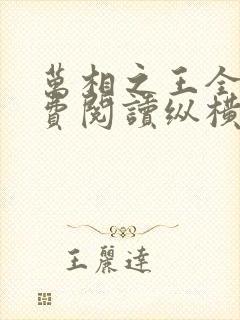 萬相之王全
費閱讀纵橫
王麗達